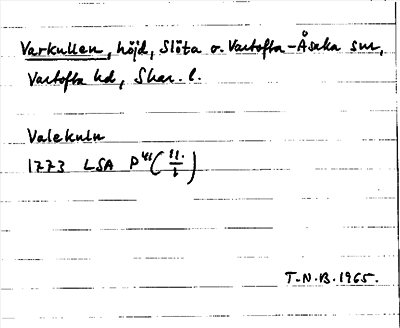 Varkullen, höjd, Slöta o. Vartofta-Åsaka snr,
Vartofta hd, Skar. l.
Valekuln
1773 LSA P
T.N.B. 1965.